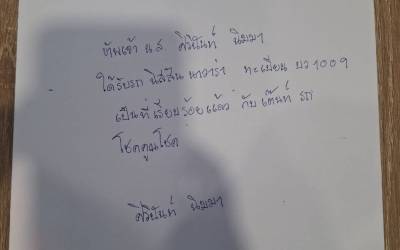 ข้าพเจ้า น.ส ศิวินันท์ นิมมา
ได้รับรถ นิสสัน นาวาร่า ทะเบียน บว 1009
เป็นที่เรียบร้อยแล้ว กับเต๊นท์ รถ
โชคคูณโชค
ศิวินันท์ นิมมา